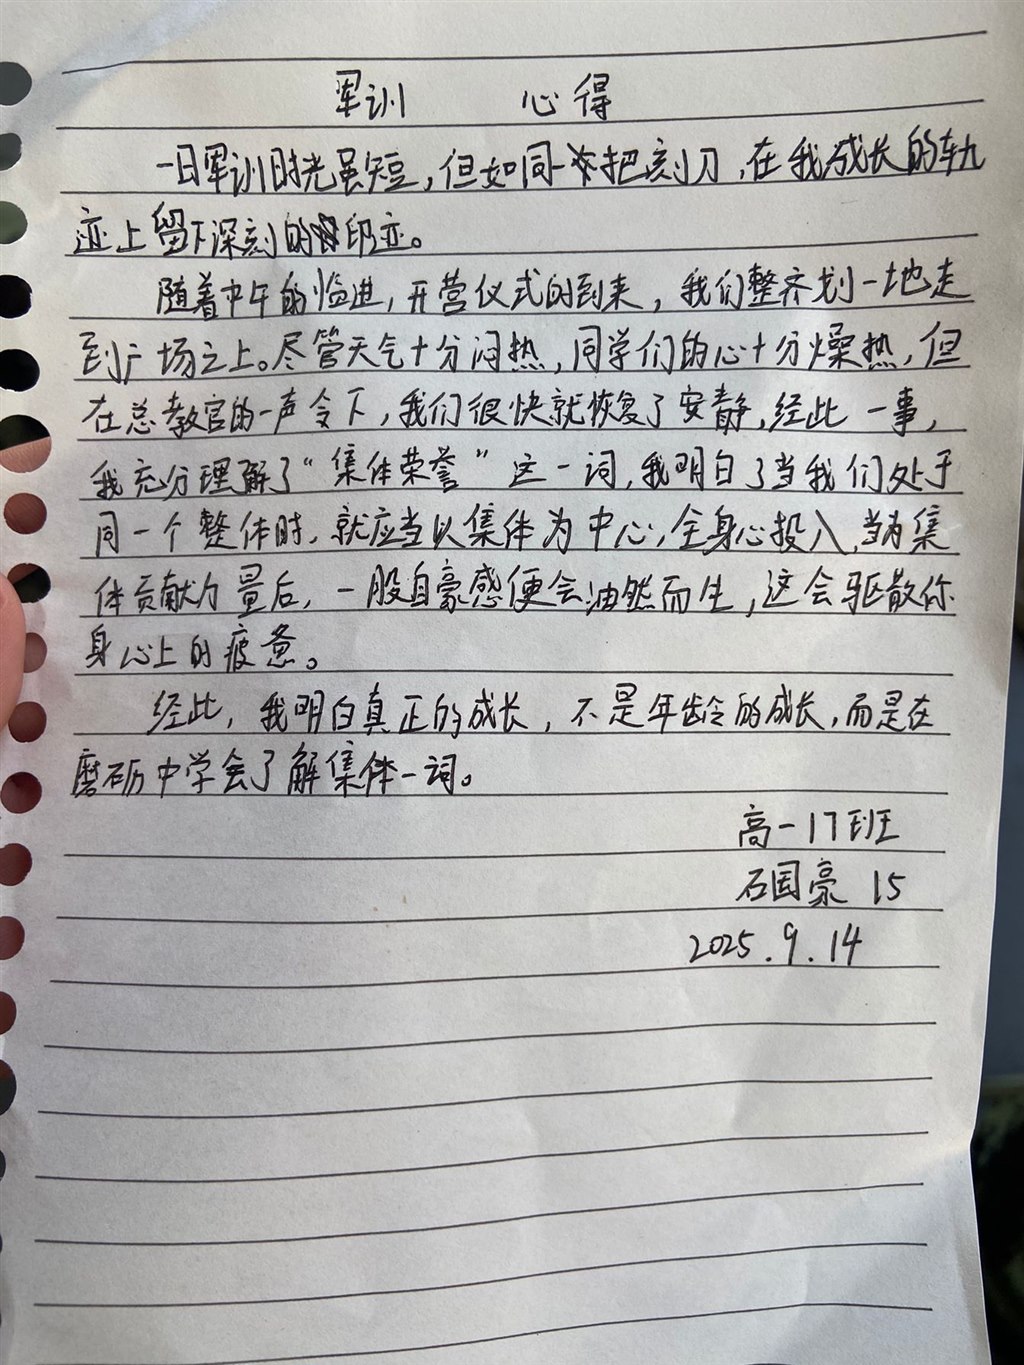 军训 心得
一日军训时光虽短，但如同一把刻刀，在我成长的轨
迹上留下深刻的印迹。
随着中午的临进，开营仪式的到来，我们整齐划一地走
到广场之上。尽管天气十分闷热，同学们的心十分燥热，但
在总教官的一声令下，我们很快就恢复了安静，经此一事，
我充分理解了“集体荣誉”这一词，我明白了当我们处于
同一个整体时，就应当以集体为中心，全身心投入，当为集
体贡献力量后，一股自豪感便会油然而生，这会驱散你
身心上的疲惫。
经此，我明白真正的成长，不是年龄的成长，而是在
磨砺中学会了解集体一词。
高一17班
石国豪 15
2025.9.14